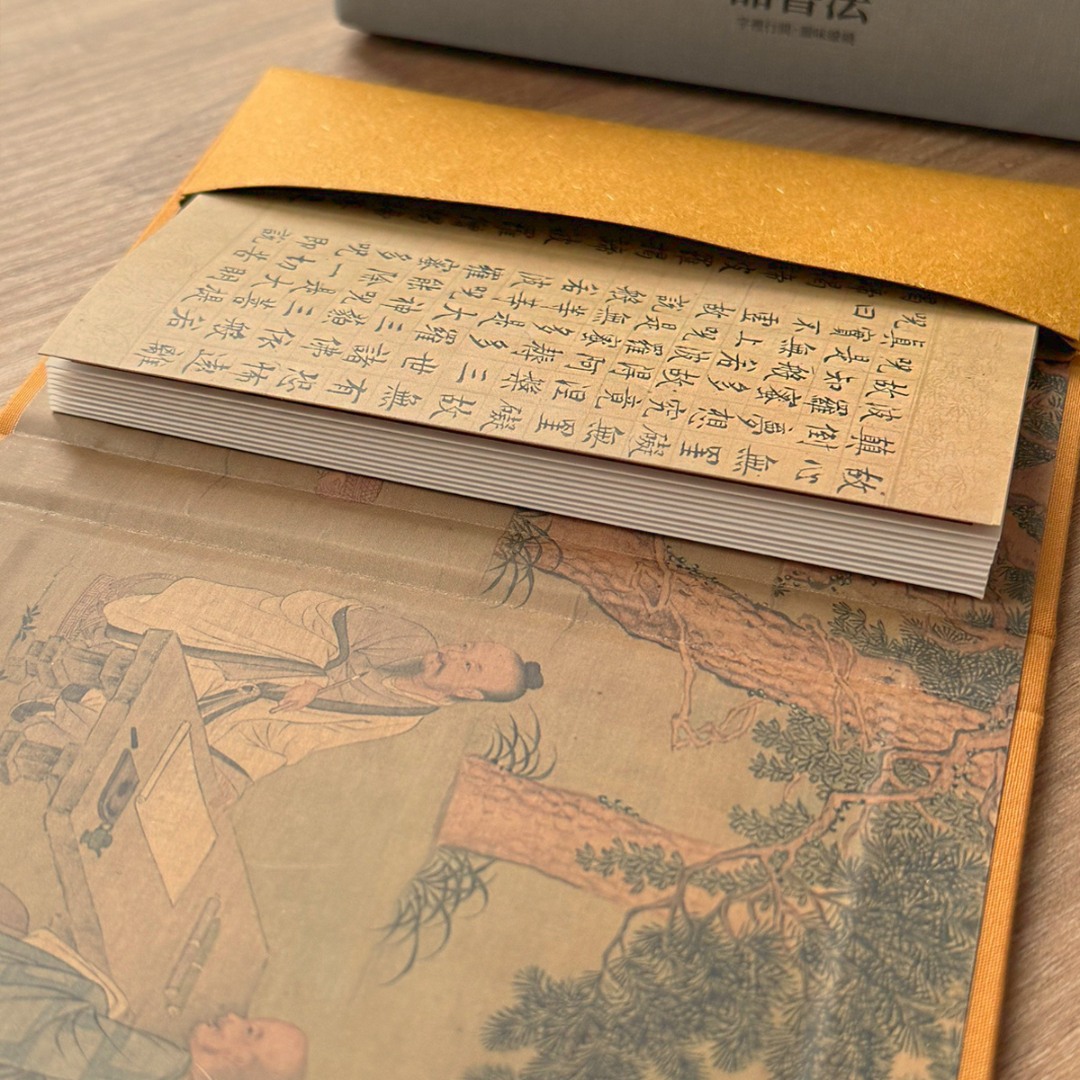 書法
故心無罣礙無罣礙故無有恐怖遠離
顛倒夢想究竟涅槃三世諸佛依般若
波羅蜜多故得阿耨多羅三藐三菩提
故知般若波羅蜜多是大神咒是大明
咒是無上咒是無等等咒能除一切苦
真實不虛故說般若波羅蜜多咒即說
咒曰